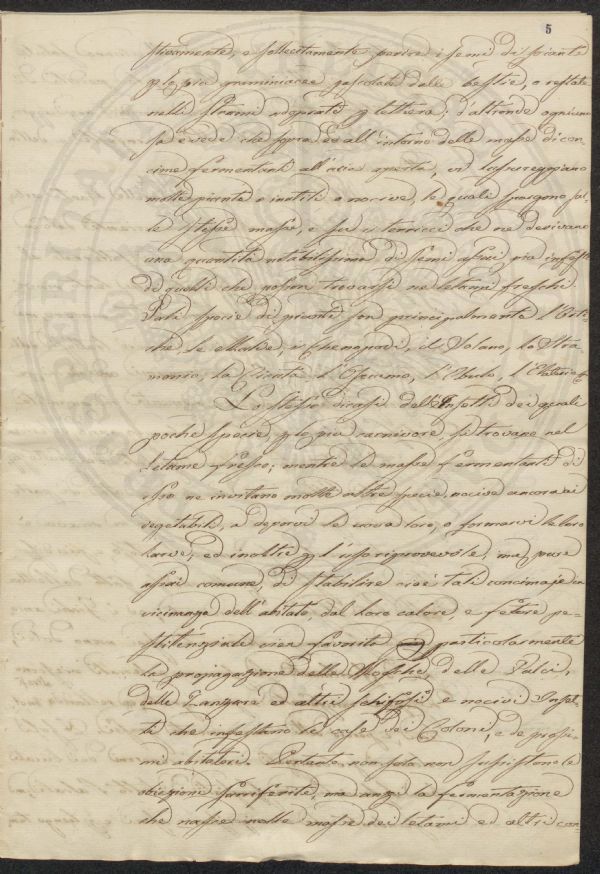 5
stivamente, e sollecitamente perire i semi di piante
p lo più graminiacee pascolate dalle bestie, o restate
nelli strami adoprati p lettiera; d'altronde ognuno
sa e vede che sopra ed all'intorno delle masse di con-
cime fermentanti all'aria aperta, vi lussureggiano
molte piante o inutili o nocive, le quali spargono sul-
le stesse masse, e su i terricci che ne derivano
una quantità notabilissima di semi assai più infesti
di quelli che posson trovarsi ne letami freschi.
Tali specie di piante son principalmente l'Orti-
che, le Malve, i Chenopodi, il Solano, lo Stra-
monio, la Cicuta, l'Josciamo, l'Ebulo,
Lo stesso dicasi dell'Insetti dei quali
poche specie, p lo più carnivore, si trovano nel
letame fresco; mentre le masse fermentanti di
esso ne invitano molte altre specie, nocive ancora ai
vegetabili, a deporvi le uova loro, o formarvi le loro
larve, ed inoltre p l'uso riprovevole, ma pure
assai comune, di stabilire cioè tali concimaje in
vicinanza dell'abitato, dal loro calore, e fetore pe-
stilenziale vien favorita particolarmente
la propagazione delle Mosche, delle Pulci,
delle Zanzare ed altri schifosi e nocivi Inset-
ti che infestano le case dei Coloni, e de prossi-
mi abitatori. Pertanto, non solo non sussistono le
obiezioni surriferite, ma anzi la fermentazione
che nasce nelle masse dei letami ed altri con-